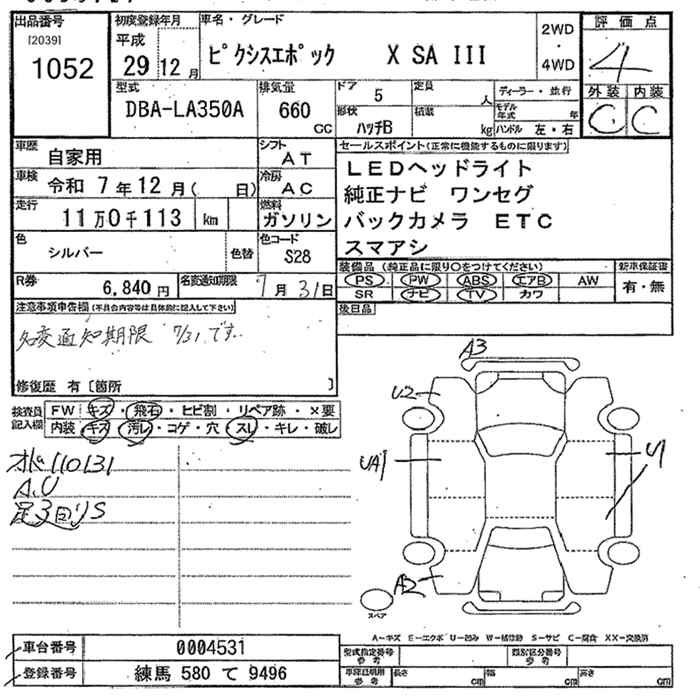 出品番号
[2039]
1052
初度登録年月
平成
29 12 月
車名・グレード
ピクシスエポック X SA III
2WD
4WD
評価点
4
外装 内装
C C
型式
DBA-LA350A
排気量
660
CC
ドア
5
定員
人
形状
ハッチB
積載
kg
ディーラー・並行
モデル年式
年
ハンドル 左・右
車歴
自家用
シフト
AT
車検
令和 7 年 12 月 ( 日)
冷房
AC
走行
11 万 0 千 113 km
燃料
ガソリン
色
シルバー
色替
色コード
S28
R券
6,840 円
名変通知期限
7 月 31 日
セールスポイント (正常に機能するものに限ります)
LEDヘッドライト
純正ナビ ワンセグ
バックカメラ ETC
スマアシ
装備品 (純正品に限り○をつけてください)
PS PW ABS エアB AW
SR ナビ TV カワ
新車保証書
有・無
後日品
注意事項申告欄 (不具合内容等は具体的に記入して下さい)
名変通知期限 7/31です。
修復歴 有 〔箇所 〕
検査員
記入欄
FW キズ・飛石・ヒビ割・リペア跡・×要
内装 キズ・汚レ・コゲ・穴・スレ・キレ・破レ
オド110131
A.U
足3回りS
A3
U2
UA1
U1
A2
スペア
A-キズ E-エクボ U-凹み W-補修跡 S-サビ C-腐食 XX-交換済
車台番号
0004531
登録番号
練馬 580 て 9496
型式指定番号
参考
類別区分番号
参考
車庫証明用
参考
長さ
cm
幅
cm
高さ
cm